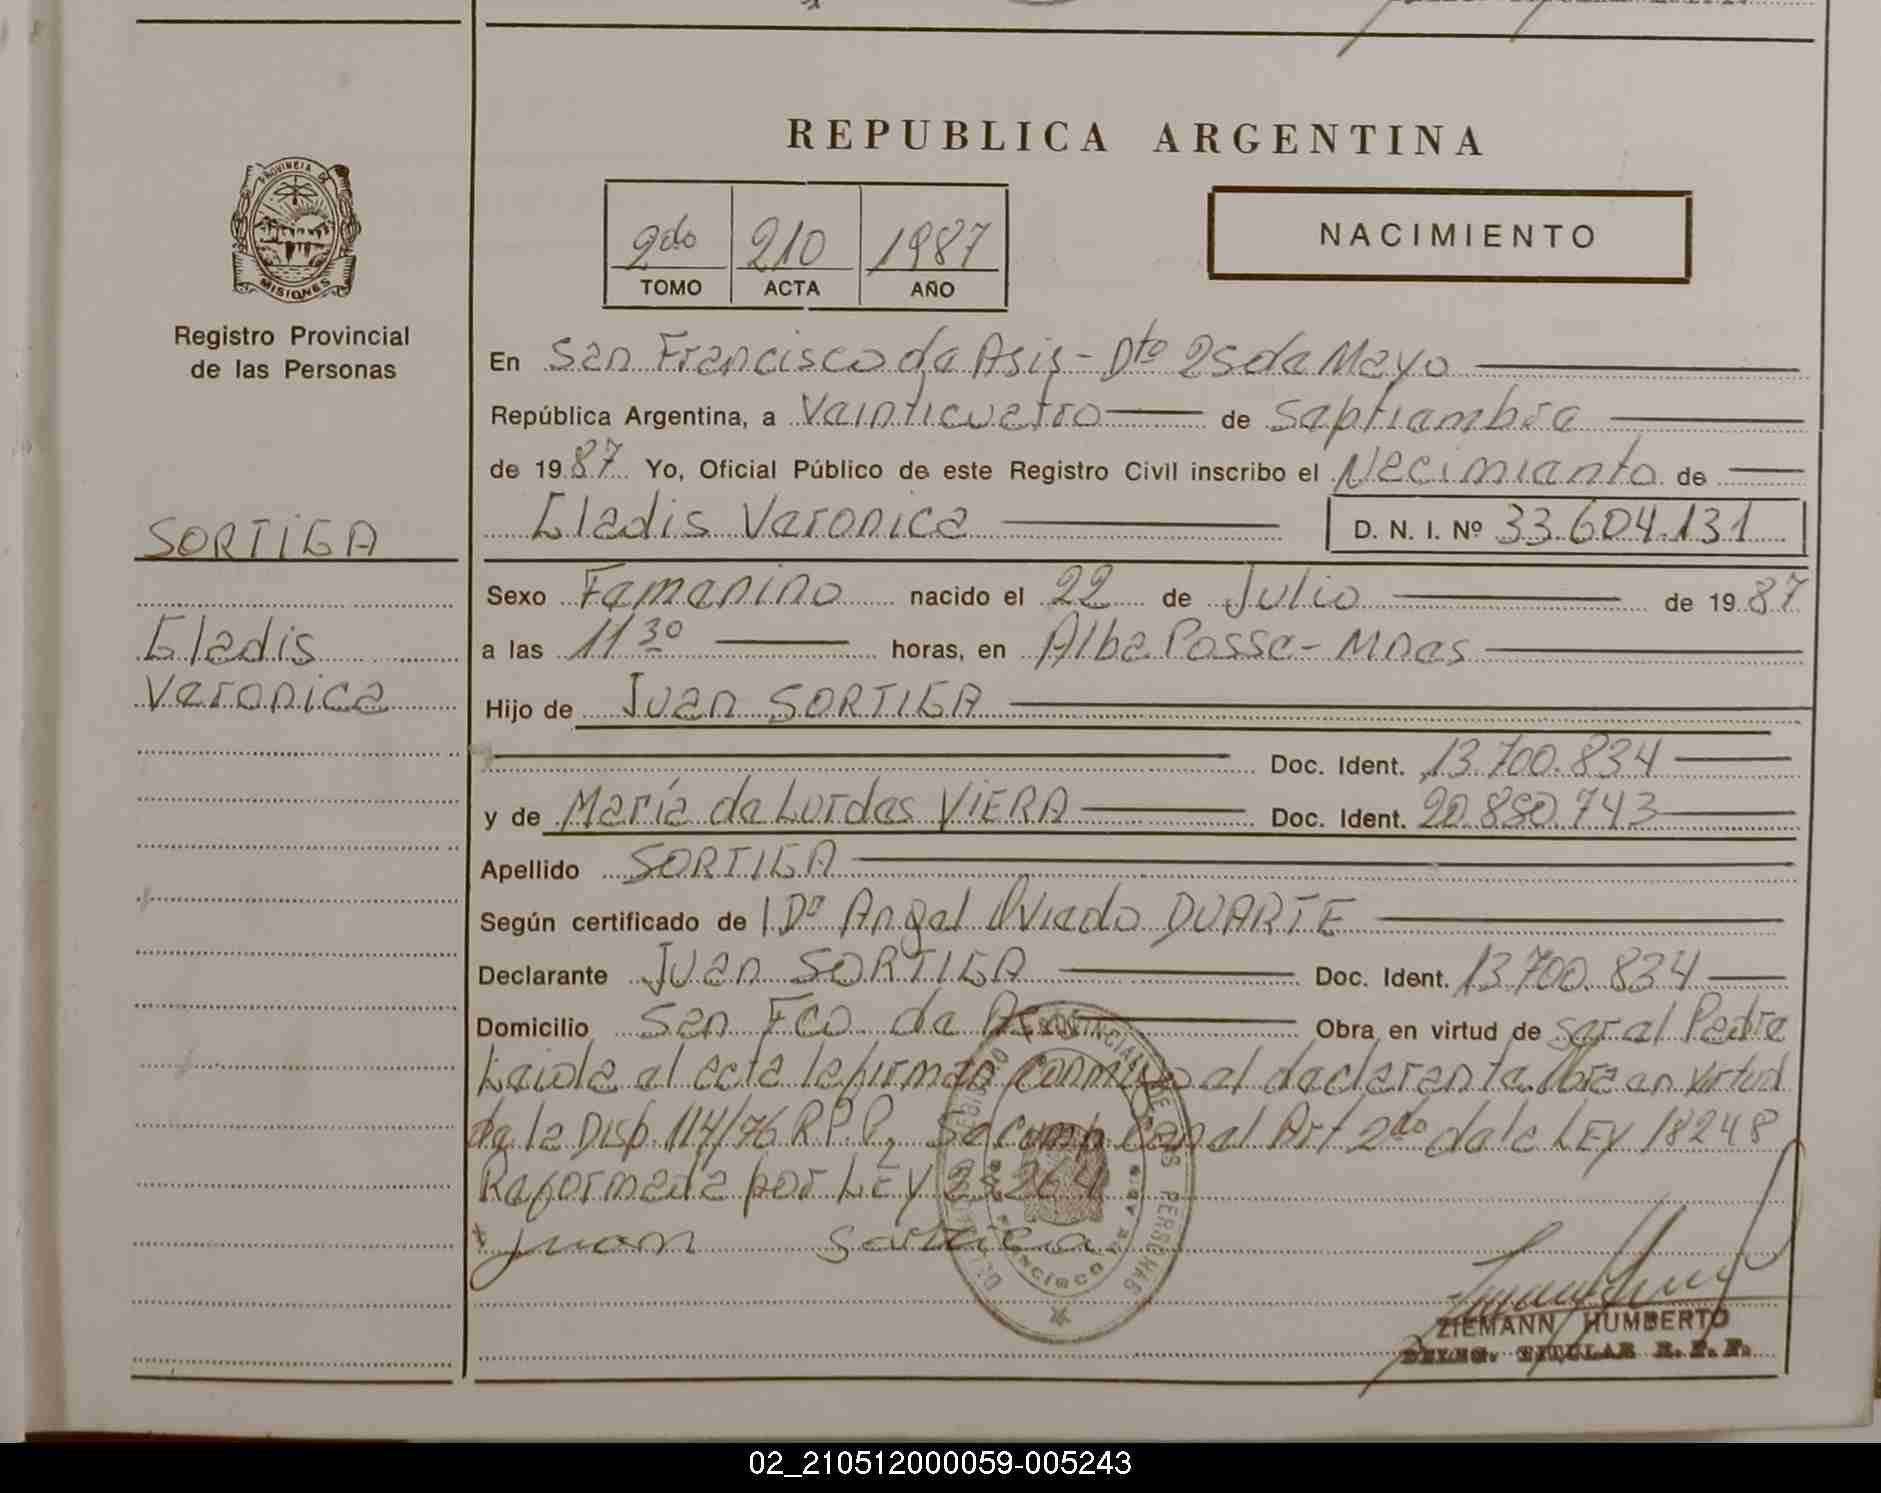 REPUBLICA ARGENTINA
PROVINCIA DE
MISIONES
Registro Provincial
de las Personas
2do 210 1987
TOMO ACTA AÑO
NACIMIENTO
En San Francisco de Asis - Dto 25 de Mayo
República Argentina, a Veinticuatro de Septiembre
de 1987 Yo, Oficial Público de este Registro Civil inscribo el Nacimiento de
Gladis Veronica D. N. I. Nº 33.604.131
SORTIGA
Gladis
Veronica
Sexo Femenino nacido el 22 de Julio de 1987
a las 11 30 horas, en Alba Posse - Mnes
Hijo de Juan SORTIGA
Doc. Ident. 13.700.834
y de María de Lurdes VIERA Doc. Ident. 20.880.743
Apellido SORTIGA
Según certificado de Dr Angel Oviedo DUARTE
Declarante Juan SORTIGA Doc. Ident. 13.700.834
Domicilio San Fco de Obra en virtud de ser el Padre
Leida el acta la firman conmigo el declarante. Obra en virtud
de la Disp. 114/76 R.P.P, Se comp. con el Art 2do de la LEY 18248
Reformada por LEY 23.264
Juan Sortiga
ZIEMANN HUMBERTO
TITULAR R. P. P.
02_210512000059-005243